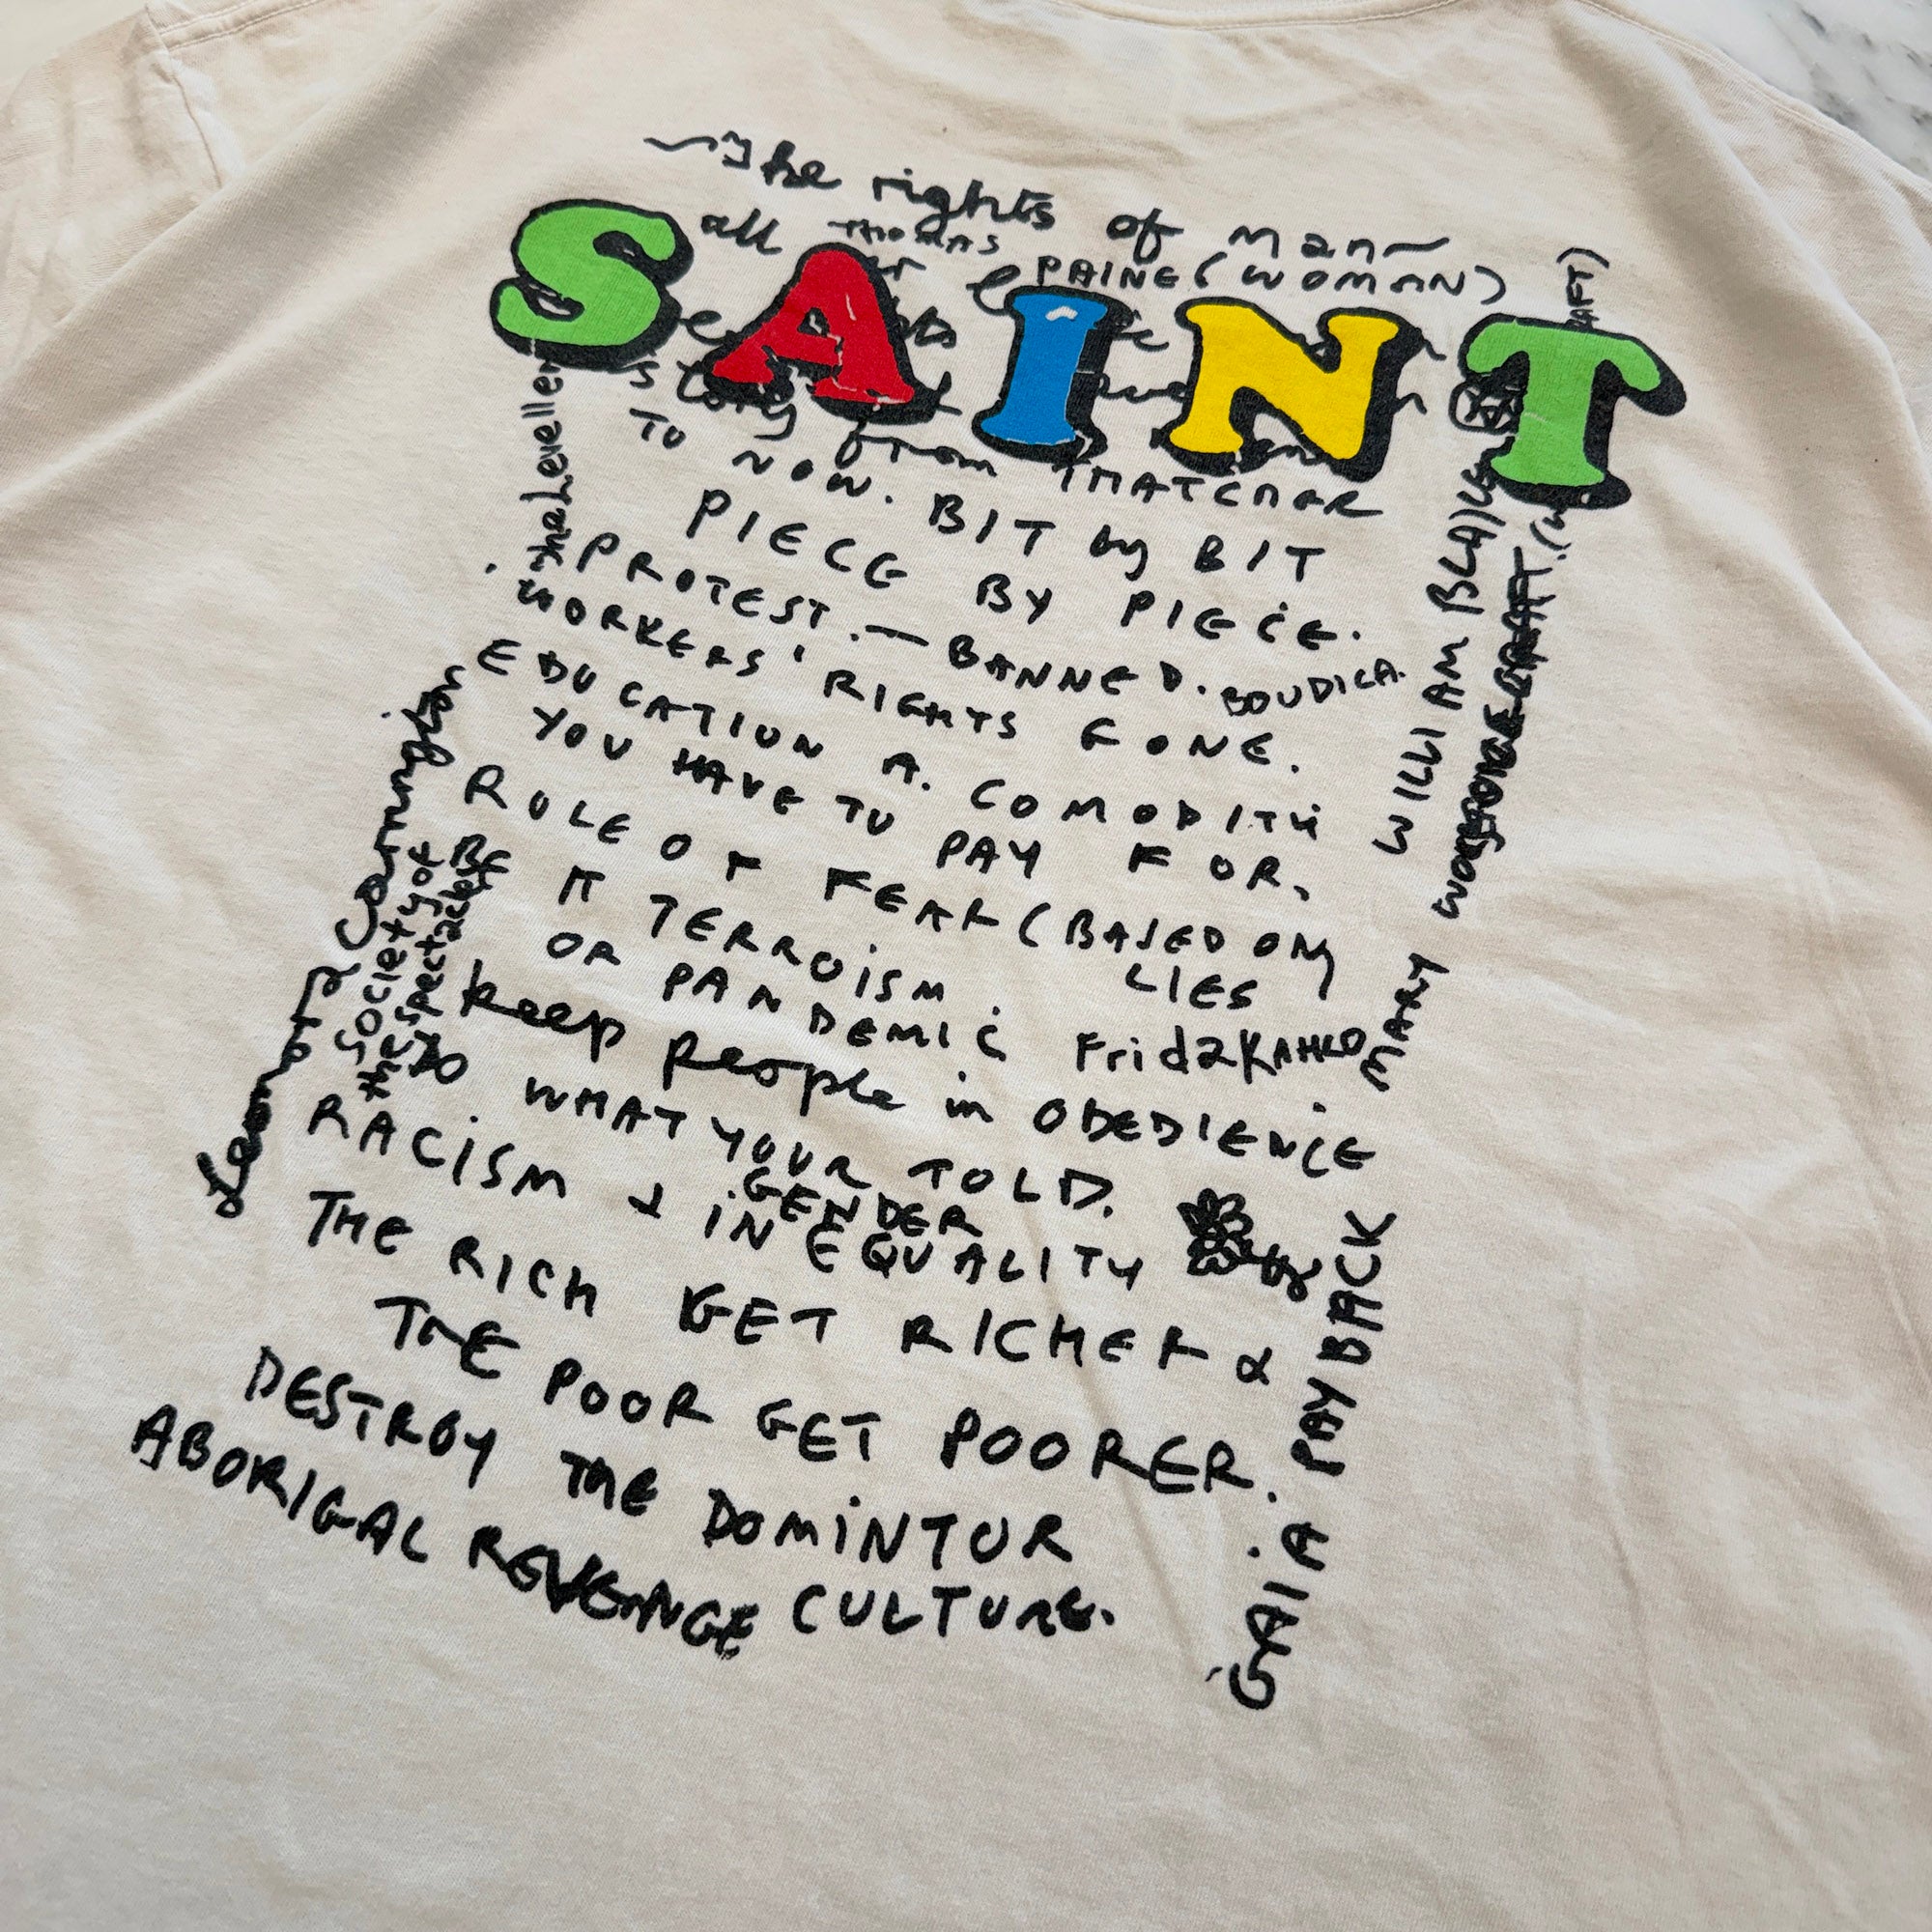 The rights of man
all THOMAS PAINE (WOMAN)
SAINT
from THATCHAR
TO NOW. BIT by BIT
PIECE BY PIECE.
PROTEST. — BANNED. BOUDICA.
WORKERS' RIGHTS GONE.
EDUCATION A. COMODITY
YOU HAVE TO PAY FOR.
RULE OF FEAR (BASED ON
LIES
BE IT TERROISM.
OR PANDEMIC
Frida KAHLO
keep people in OBEDIENCE
DO WHAT YOUR TOLD.
RACISM & GENDER INEQUALITY
THE RICH GET RICHER &
THE POOR GET POORER.
DESTROY THE DOMINTOR
CULTURE.
ABORIGAL REVENGE
the Leveller
Leonora Carrington
society of
the spectacle
WILLIAM BLAKE
MARY
GAIA PAY BACK